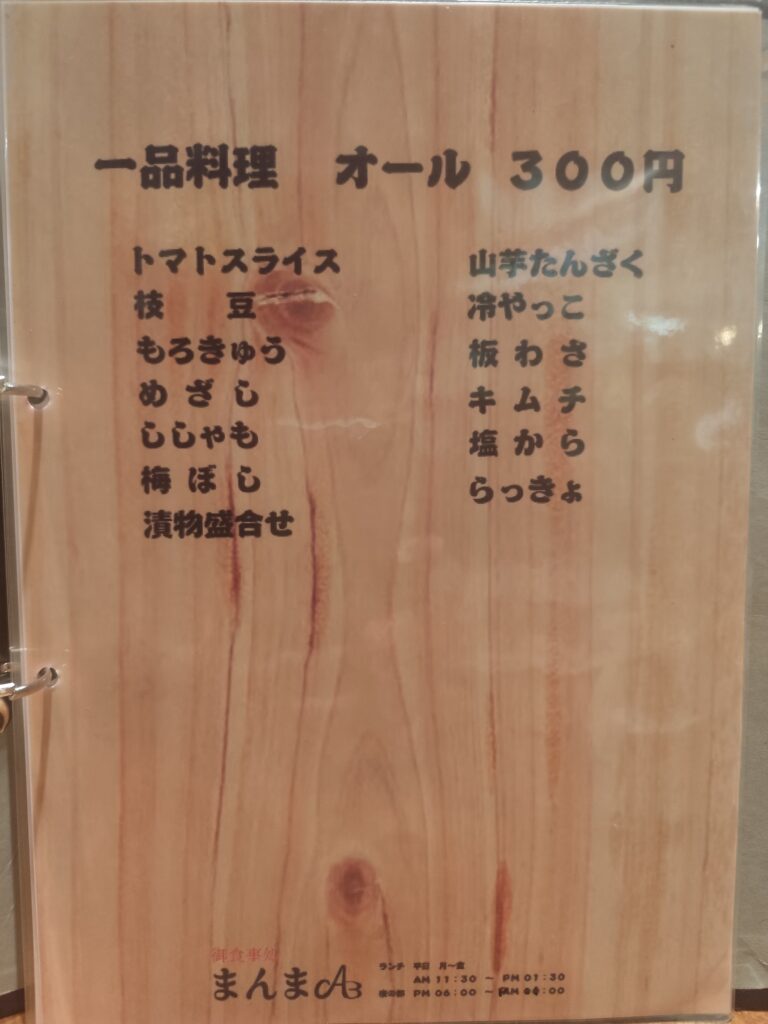 一品料理 オール 300円
トマトスライス
枝 豆
もろきゅう
め ざ し
ししゃも
梅 ぼ し
漬物盛合せ
山芋たんざく
冷やっこ
板 わ さ
キ ム チ
塩 か ら
らっきょ
御食事処
まんま
ランチ 平日 月～金
AM 11:30 ～ PM 01:30
夜の部 PM 06:00 ～